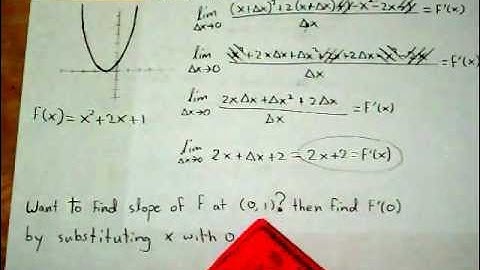 lim Δx→0 (x+Δx)²+2(x+Δx)+1-x²-2x+1 / Δx = F'(x)
lim Δx→0 x²+2xΔx+Δx²+2x+2Δx-x²-2x / Δx = F'(x)
lim Δx→0 2xΔx+Δx²+2Δx / Δx = F'(x)
F(x)=x²+2x+1
lim Δx→0 2x+Δx+2 = 2x+2=F'(x)
Want to find slope of F at (0,1)? then find F'(0)
by substituting x with 0